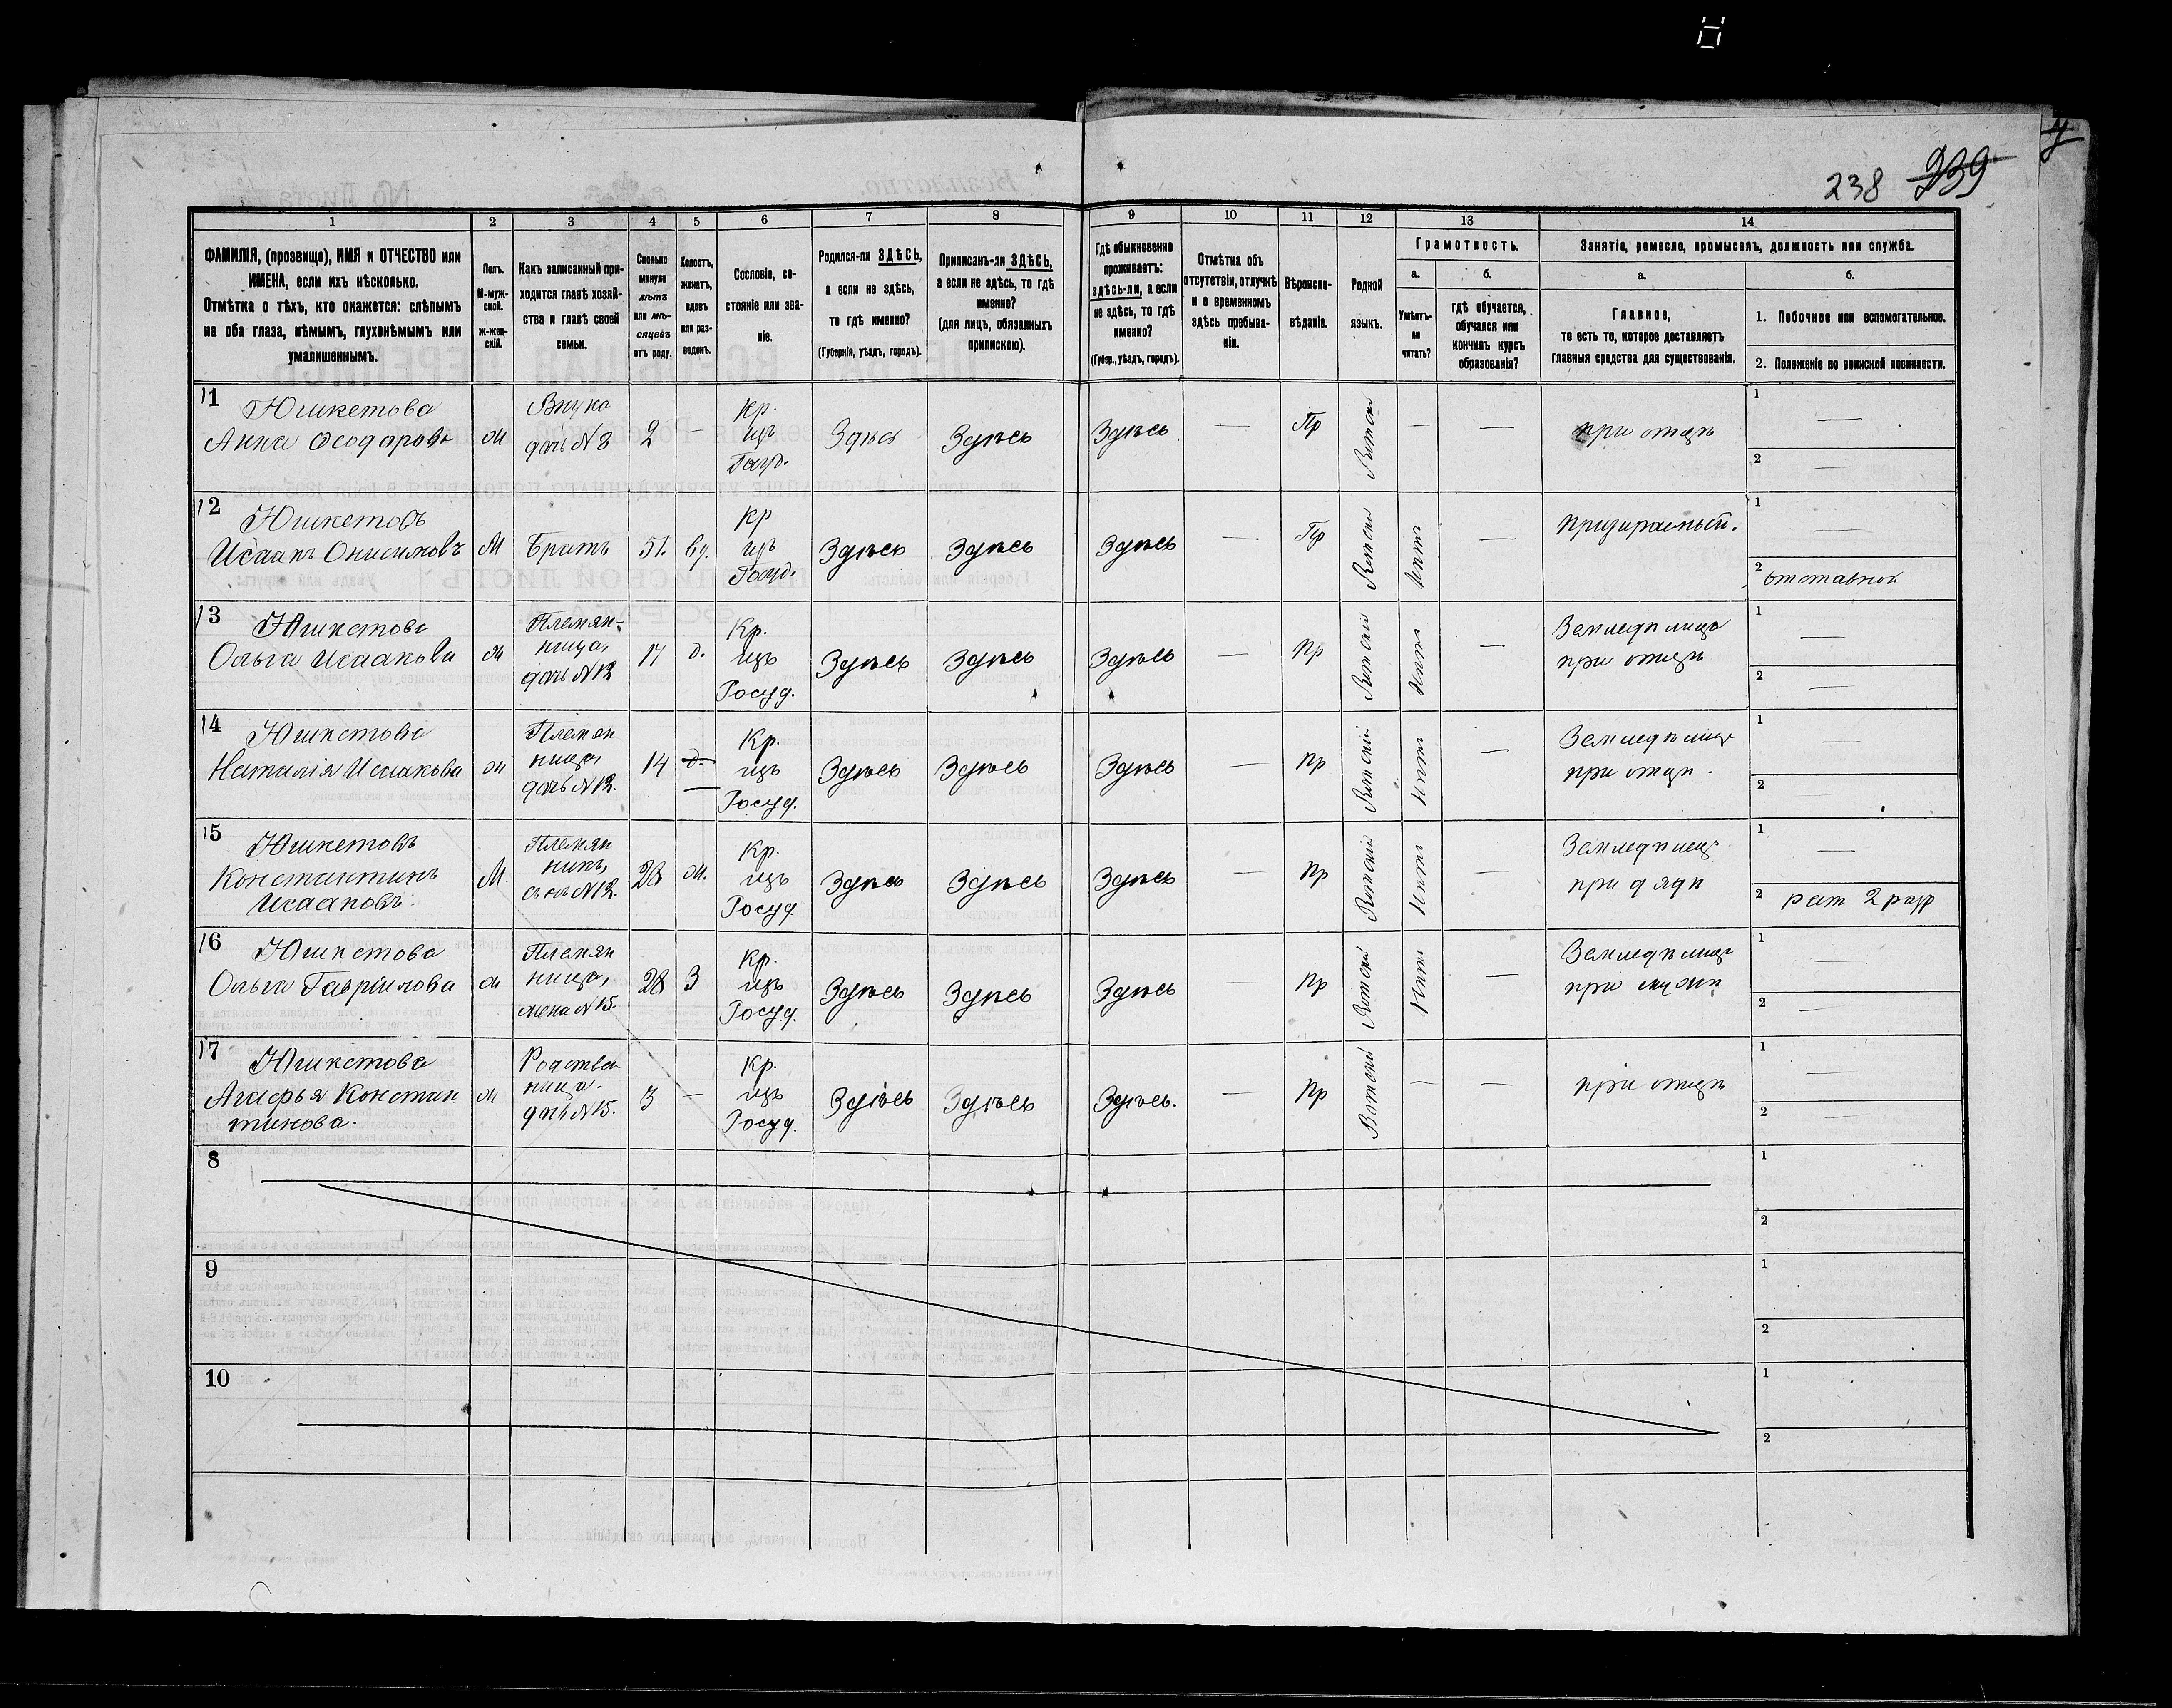 238 239
1 2 3 4 5 6 7 8 9 10 11 12 13 14
ФАМИЛІЯ, (прозвище), ИМЯ и ОТЧЕСТВО или ИМЕНА, если ихъ нѣсколько.
Отмѣтка о тѣхъ, кто окажется: слѣпымъ на оба глаза, нѣмымъ, глухонѣмымъ или умалишеннымъ.
Полъ.
М-мужской.
Ж-женскій.
Какъ записанный приходится главѣ хозяйства и главѣ своей семьи.
Сколько минуло лѣтъ или мѣсяцевъ отъ роду.
Холостъ, женатъ, вдовъ или разведенъ.
Сословіе, состояніе или званіе.
Родился-ли ЗДѢСЬ, а если не здѣсь, то гдѣ именно?
(Губернія, уѣздъ, городъ).
Приписанъ-ли ЗДѢСЬ, а если не здѣсь, то гдѣ именно?
(для лицъ, обязанныхъ припискою).
Гдѣ обыкновенно проживаетъ: здѣсь-ли, а если не здѣсь, то гдѣ именно?
(Губер., уѣздъ, городъ).
Отмѣтка объ отсутствіи, отлучкѣ и о временномъ здѣсь пребываніи.
Вѣроисповѣданіе.
Родной языкъ.
Грамотность.
а.
Умѣетъ-ли читать?
б.
гдѣ обучается, обучался или кончилъ курсъ образованія?
Занятіе, ремесло, промыселъ, должность или служба.
а.
Главное,
то есть то, которое доставляетъ главныя средства для существованія.
б.
1. Побочное или вспомогательное.
2. Положеніе по воинской повинности.
11 Юшкетова Анна Ѳеодорова ж Внука дочь N 8 2 — Кр. изъ Госуд. Здѣсь Здѣсь Здѣсь — Пр Вотскій — — при отцѣ 1 — 2 —
12 Юшкетовъ Исаакъ Онисимовъ М Братъ 51. вд. Кр изъ Госуд. Здѣсь Здѣсь Здѣсь — Пр Вотскій Нѣтъ — призираемый. 1 — 2 отставной
13 Юшкетова Ольга Исаакова ж Племянница, дочь N 12 17 д. Кр. изъ Госуд. Здѣсь Здѣсь Здѣсь — Пр Вотскій Нѣтъ — Земледѣлица при отцѣ 1 — 2 —
14 Юшкетова Наталія Исаакова ж Племянница, дочь N 12. 14 д. — Кр. изъ Госуд. Здѣсь Здѣсь Здѣсь — Пр Вотскій Нѣтъ — Земледѣлица при отцѣ. 1 — 2 —
15 Юшкетовъ Константинъ Исааковъ. М Племянникъ, сынъ N 12. 28 ж. Кр. изъ Госуд. Здѣсь Здѣсь Здѣсь — Пр Вотскій Нѣтъ — Земледѣлецъ при дядѣ 1 — 2 рат 2 разр
16 Юшкетова Ольга Гавріилова ж Племянница, жена N 15. 28 З Кр. изъ Госуд. Здѣсь Здѣсь Здѣсь — Пр Вотскій Нѣтъ — Земледѣлица при мужѣ 1 — 2 —
17 Юшкетова Агафья Константинова. ж Родственница. дочь N 15. 3 — Кр. изъ Госуд. Здѣсь Здѣсь Здѣсь. — Пр Вотскій — — при отцѣ 1 — 2 —
8 1 2
9 1 2
10 1 2